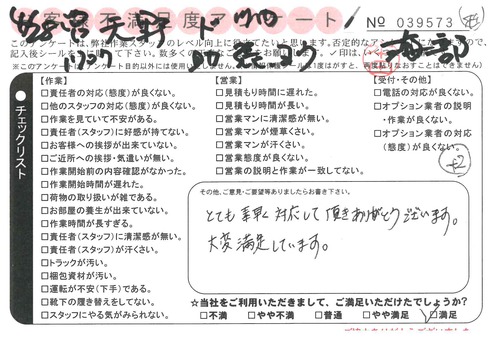 お客様不満足度アンケート
№ 039573
このアンケートは、弊社作業スタッフのレベル向上に役立てたいと思います。否定的なアンケート
チェックリスト
【作業】
□責任者の対応(態度)が良くない。
□他のスタッフの対応(態度)が良くない。
□作業を見ていて不安がある。
□責任者(スタッフ)に好感が持てない。
□お客様への挨拶が出来ていない。
□ご近所への挨拶・気遣いが無い。
□作業開始前の内容確認がなかった。
□作業開始時間が遅れた。
□荷物の取り扱いが雑である。
□お部屋の養生が出来ていない。
□作業時間が長すぎる。
□責任者(スタッフ)に清潔感が無い。
□責任者(スタッフ)が汗くさい。
□トラックが汚い。
□梱包資材が汚い。
□運転が不安(下手)である。
□靴下の履き替えをしてない。
□スタッフにやる気がみられない。
【営業】
□見積もり時間に遅れた。
□見積もり時間が長い。
□営業マンに清潔感が無い。
□営業マンが煙草くさい。
□営業マンが汗くさい。
□営業態度が良くない。
□営業の説明と作業が一致してない。
【受付・その他】
□電話の対応が良くない。
□オプション業者の説明
・作業が良くない。
□オプション業者の対応
(態度)が良くない。
+2
その他、ご意見・ご要望等ありましたらお書き下さい。
とても手早く対応して頂きありがとうございます。
大変満足しています。
☆当社をご利用いただきまして、ご満足いただけたでしょうか?
□不満 □やや不満 □普通 □やや満足 □満足